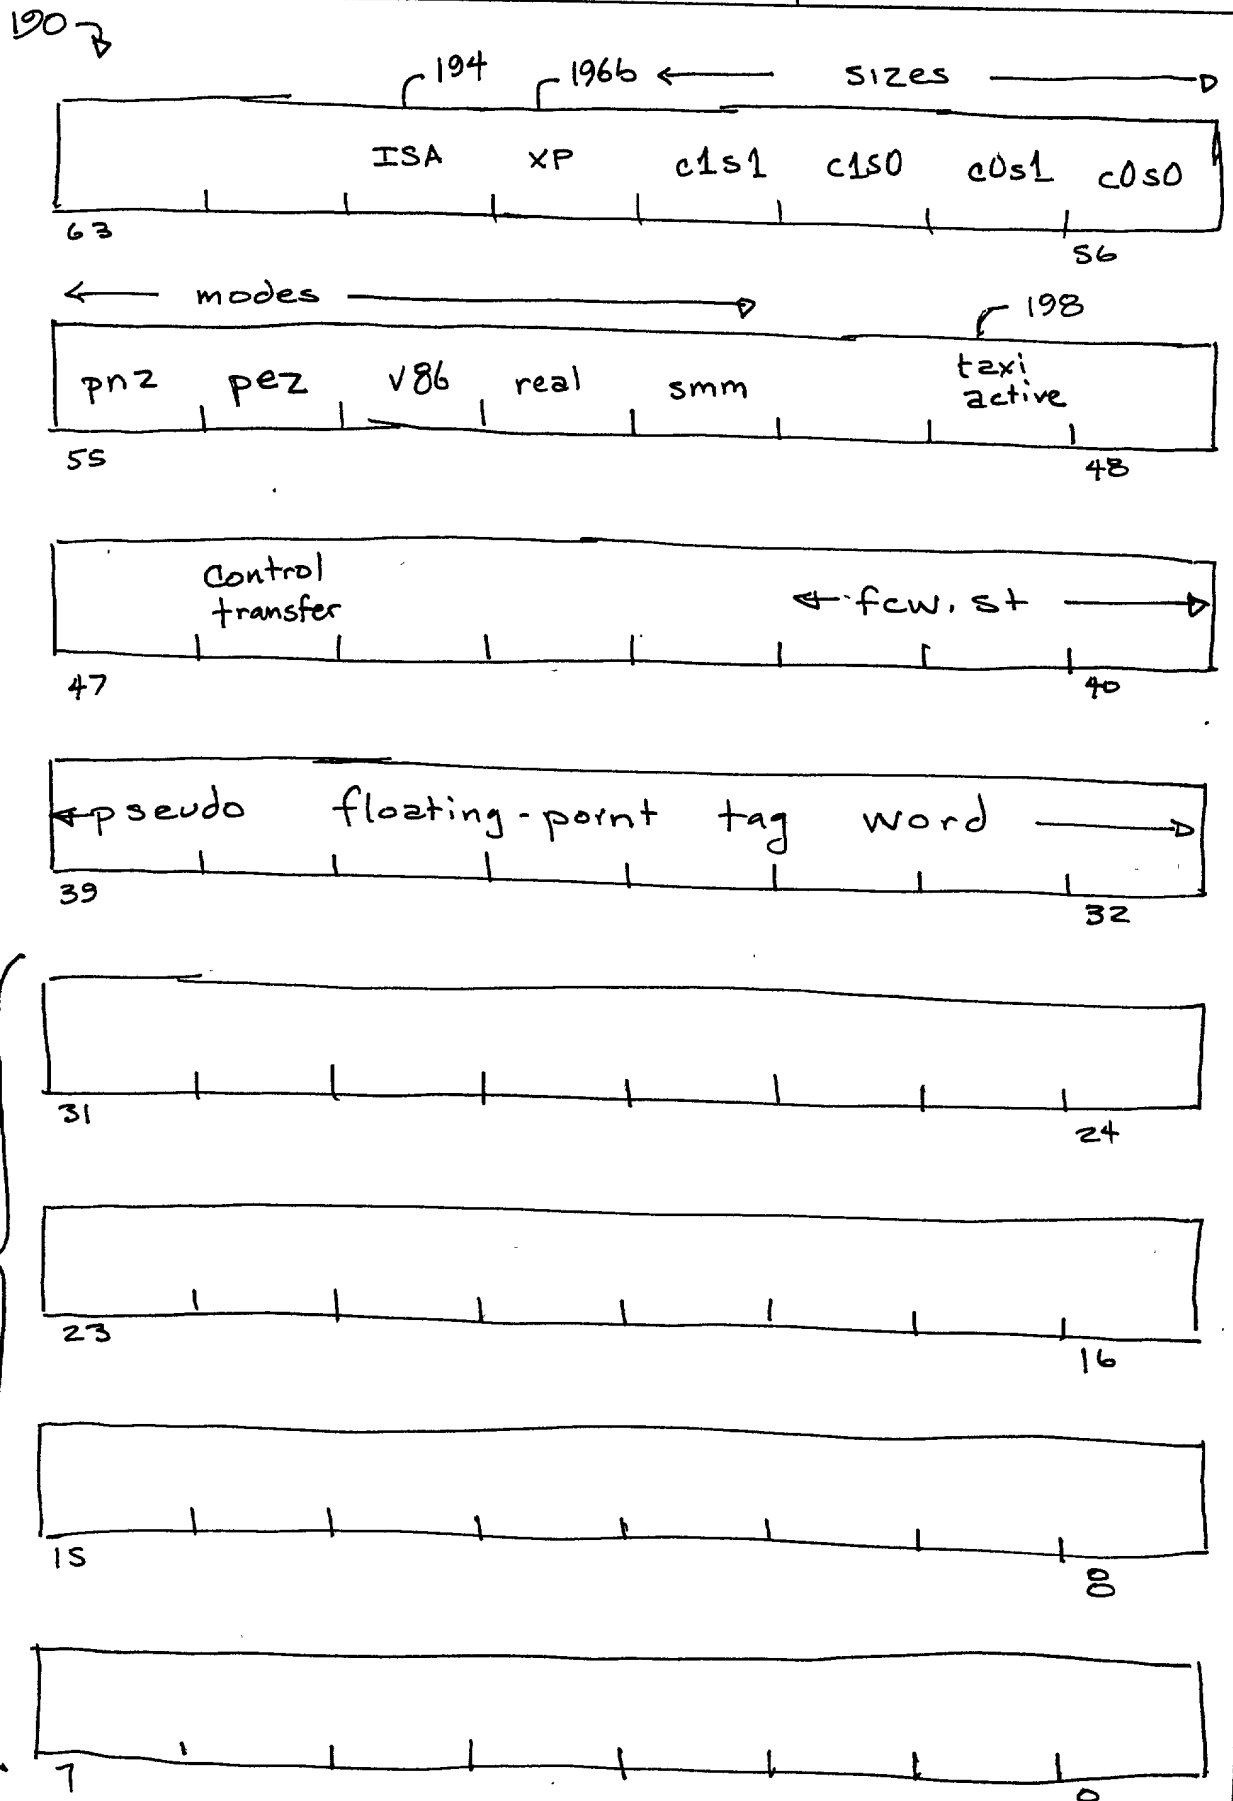 190
194 196b sizes
ISA XP c1s1 c1s0 c0s1 c0s0
63 56
modes 198
pnz pez v86 real smm taxi
active
55 48
control
transfer fcw.st
47 40
pseudo floating-point tag word
39 32
31 24
23 16
15 8
7 0